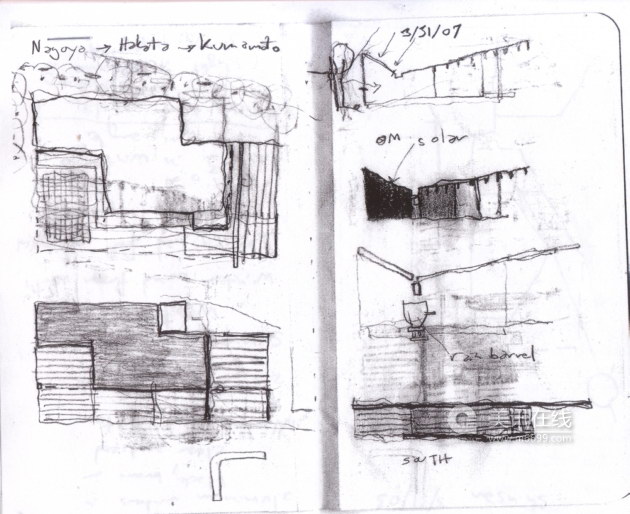 Nagoya → Hakata → Kumamoto
3/31/07
OM solar
rain barrel
SOUTH
美术在线